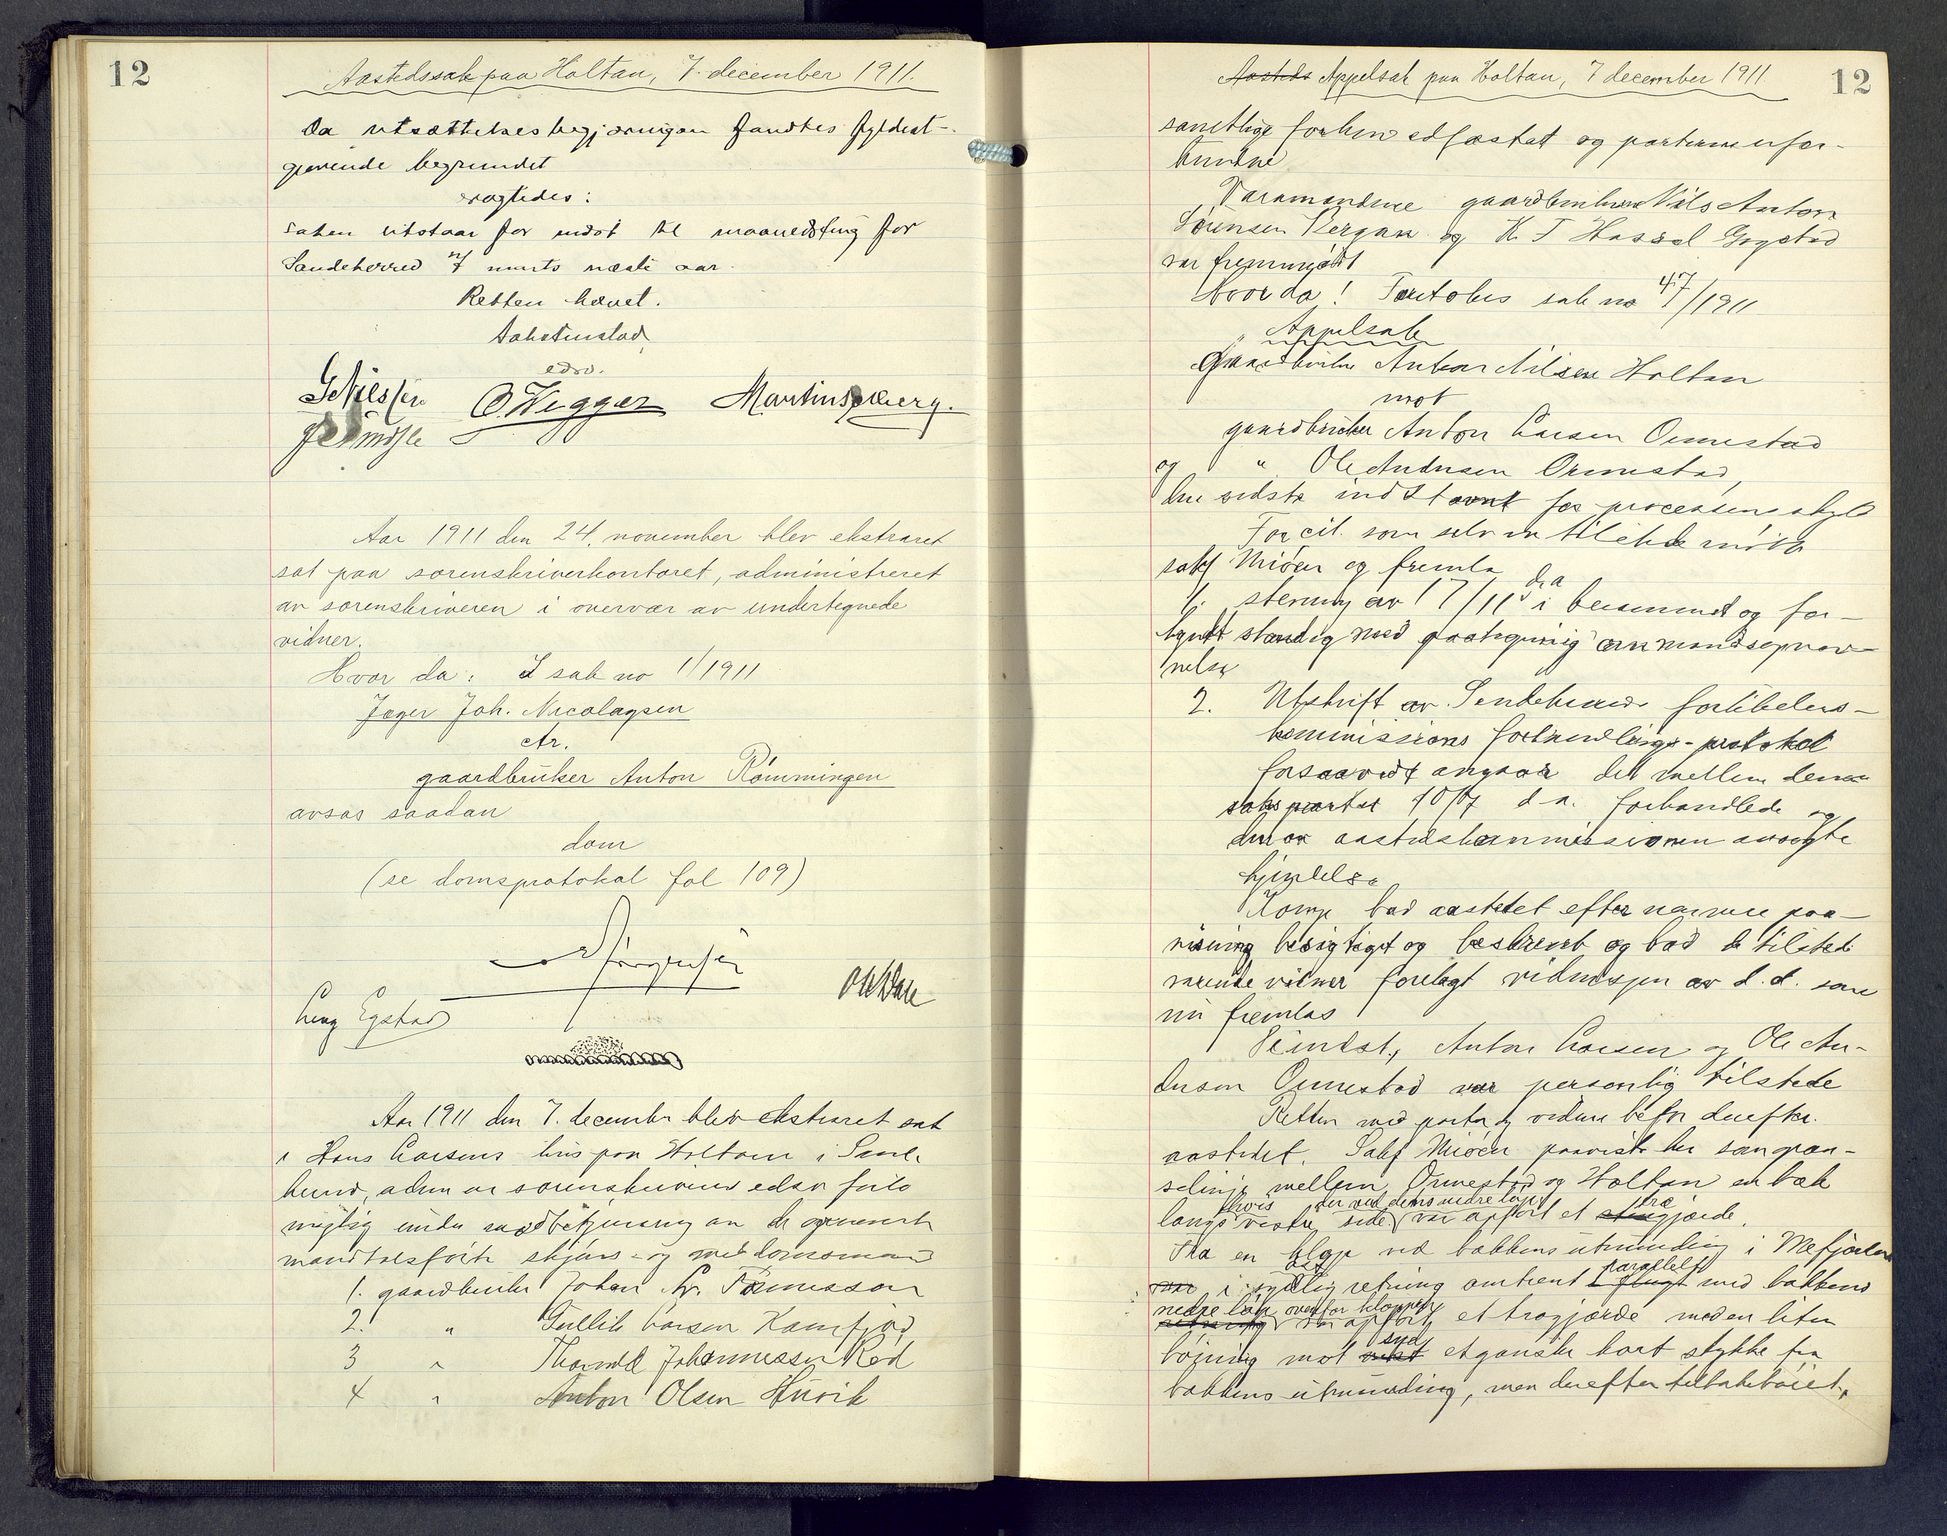 12
Aastedssak paa Holtan, 7. december 1911.
Da utsættelsesbegjæringen fandtes fyldest-
gjørende begrundet
vagtedes:
saken utstaar for indst til maanedsting for
Sandeherred 7/ marts næste aar.
Retten hævet.
edsv.
G Nilssen O. Wegger Martinsberg.
Aar 1911 den 24. november blev ekstraret
sat paa sorenskriverkontoret, administreret
av sorenskriveren i overvær av undertegnede
vidner.
Hvor da: I sak no 1/1911
Jæger Joh. Nicolaysen
ctr.
gaardbruker Anton Rømmingen
avsas saadan
dom
(se domsprotokol fol 109)
Egstad
Aar 1911 den 7. december blev ekstraret sat
i Hans Larsens hus paa Holtan i Sande
herred, adm av sorenskriverens edsv fuld
mægtig under medbetjening av de opnævnte
mandtalsførte skjøns- og meddomsmænd
1. gaardbruker Johan Kr. Tømmessen
2. " Gullik Larsen Kamfjord
3 " Thorvald Johannessen Rød
4 " Anton Olsen Huvik
12
Aasteds Appelsak paa Holtan, 7 december 1911
samtlige forhen edfæstet og parterne ufor-
bundne
Varamændene gaardbrukerne Nils Anton
Sørensen Bergan og K. T Hassel Gogstad
var fremmødt
Hvor da! Foretokes sak no 47/1911
Appelsak
Gaardbruker Anton Nilsen Holtan
mot
gaardbruker Anton Larsen Ormestad
og " Ole Andersen Ormestad,
den sidste indstævnt for processens skyld
For cit. som selv var tilstede møtte
sakf Miøen og fremla
1. stevning av 17/11 d.a i bekommet og for-
kyndt stand og med paategning om mandsopnæv-
nelse
2. Utskrift av Sandeherreds forlikelses-
kommissions forhandlings-protokol
forsaavidt angaar det mellem denne
saks parter 10/7 d.a. forhandlede og
den av aastedskommissionen avsagte
kjendelse
Komp bad aastedet efter nærmere paa-
visning besigtiget og beskrevet og bad de tilstede
værende vidner forelagt vidnesspm av d.d. som
nu fremlas
Veindst, Anton Larsen og Ole An-
dersen Ormestad var personlig tilstede
Retten med parter og vidner befor derefter
aastedet. Sakf Miøen paaviste her som græn-
selinje mellem Ormestad og Holtan en bæk
hvis der ved dens nedre løp træ
langs vestre side var opført et stengjærde.
Fra en klop ved bækkens utmunding i Mefjorden
øst parallelt
var i sydlig retning omtrent i flugt med bækkens
nedre løp ovenfor kloppen
retning var opført et trægjærde med en liten
syd
bøining mot vest et ganske kort stykke fra
bækkens utmunding, men derefter tilbakebøiet,